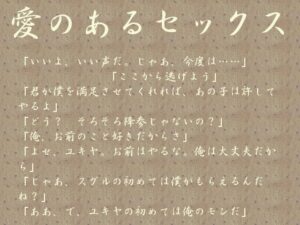 愛のあるセックス
「いいよ、いい声だ。じゃあ、今度は……」
「ここから逃げよう」
「君が僕を満足させてくれれば、あの子は許して
やるよ」
「どう？　そろそろ降参じゃないの？」
「俺、お前のこと好きだからさ」
「よせ、ユキヤ。お前はやるな。俺は大丈夫だか
ら」
「じゃあ、スグルの初めては僕がもらえるんだ
ね？」
「ああ、で、ユキヤの初めては俺のモンだ」